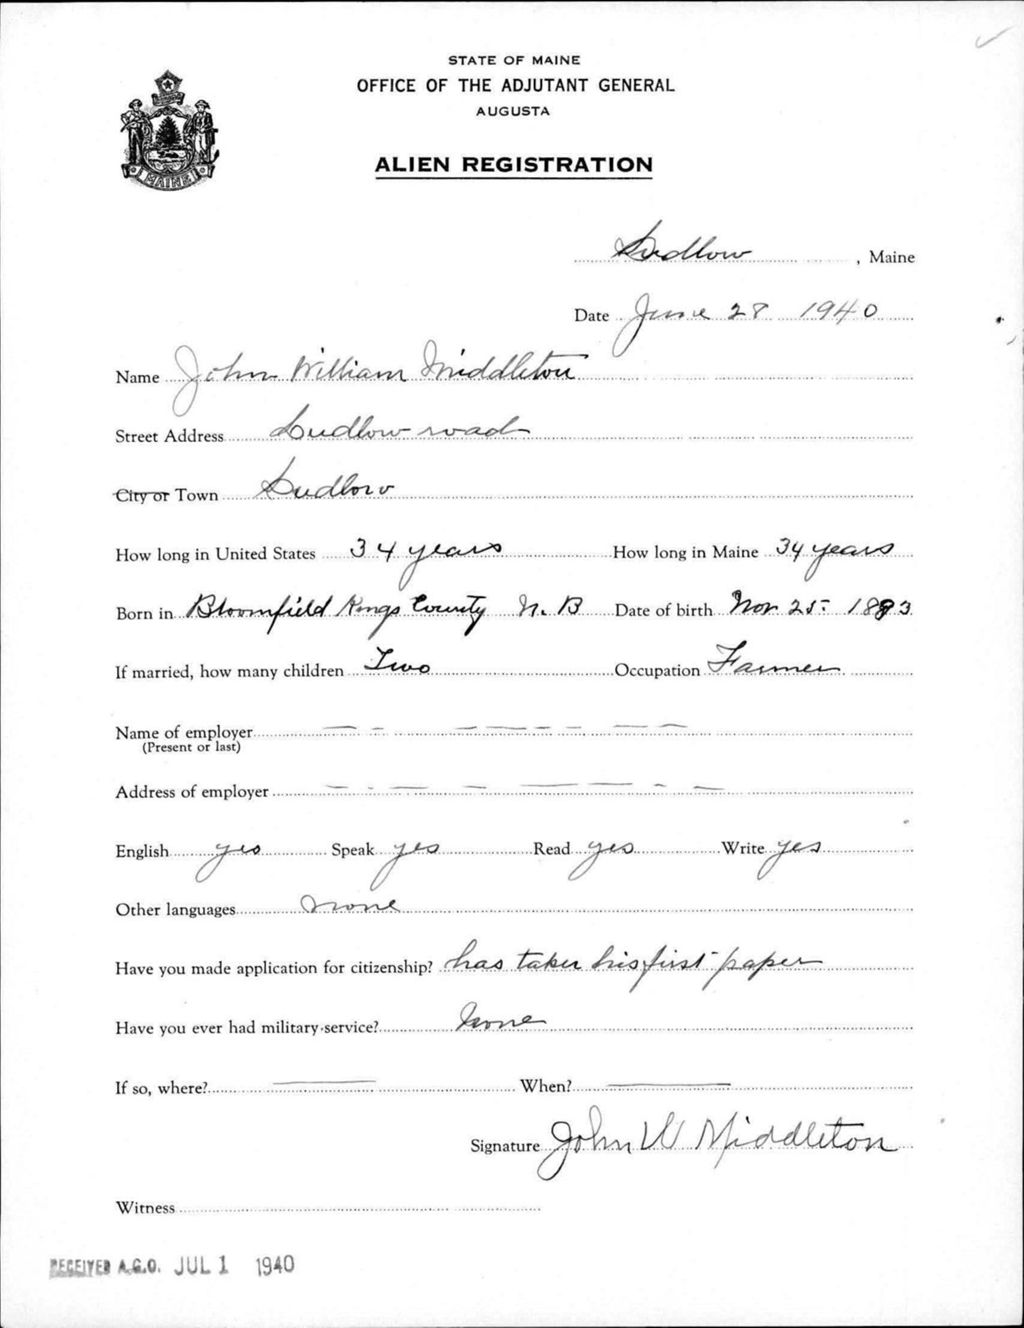 STATE OF MAINE
OFFICE OF THE ADJUTANT GENERAL
AUGUSTA
ALIEN REGISTRATION
MAINE
Ludlow, Maine
Date June 28 1940
Name John William Middleton
Street Address Ludlow road
City or Town Ludlow
How long in United States 34 years How long in Maine 34 years
Born in Bloomfield Kings County N. B Date of birth Nov 25 - 1883
If married, how many children Two Occupation Farmer
Name of employer
(Present or last)
Address of employer
English yes Speak yes Read yes Write yes
Other languages none
Have you made application for citizenship? has taken his first paper
Have you ever had military service? None
If so, where? When?
Signature John W Middleton
Witness
RECEIVED A.G.O. JUL 1 1940